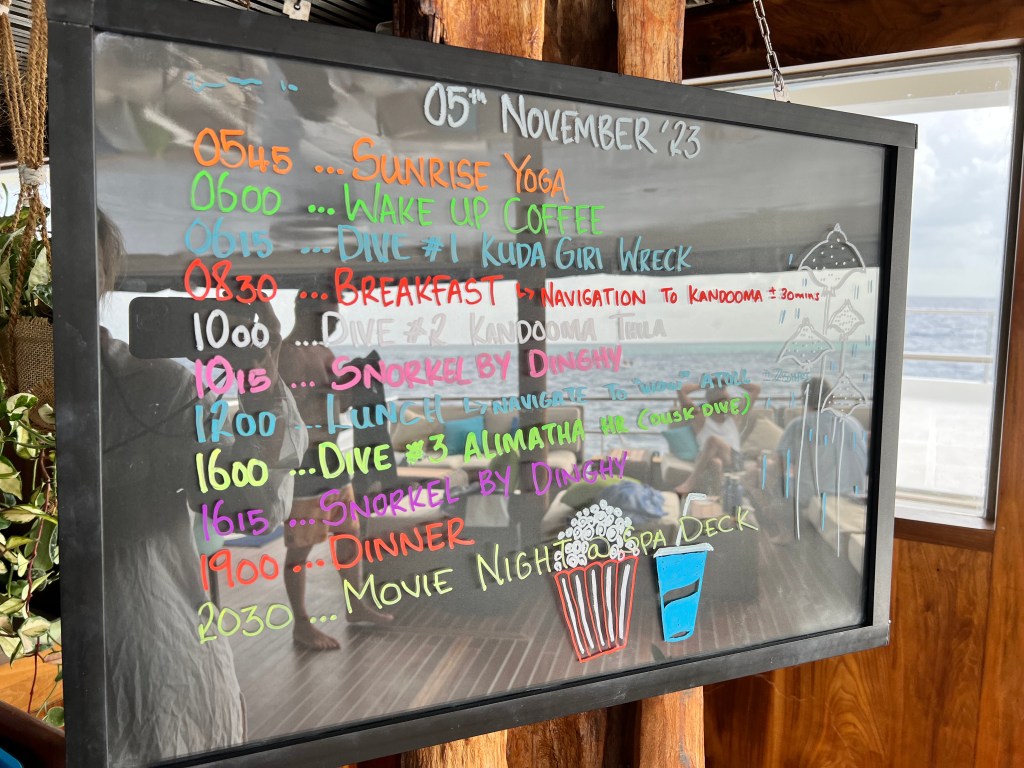 05th NOVEMBER '23
0545 ... SUNRISE YOGA
0600 ... WAKE UP COFFEE
0615 ... DIVE #1 KUDA GIRI WRECK
0830 ... BREAKFAST ↳ NAVIGATION TO KANDOOMA ± 30mins
1000 ... DIVE #2 KANDOOMA TILLA
1015 ... SNORKEL BY DINGHY
1200 ... LUNCH ↳ NAVIGATE TO ATOLL
1600 ... DIVE #3 ALIMATHA HR (DUSK DIVE)
1615 ... SNORKEL BY DINGHY
1900 ... DINNER
2030 ... MOVIE NIGHT @ SPA DECK